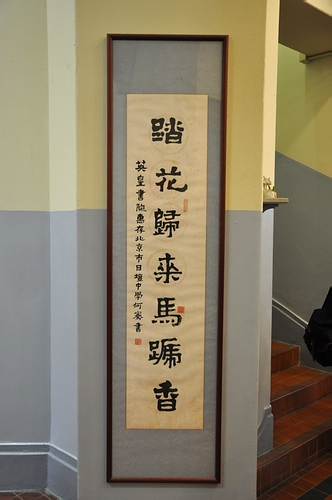 踏花歸来馬蹏香
英皇書院惠存北京市日壇中學何家書